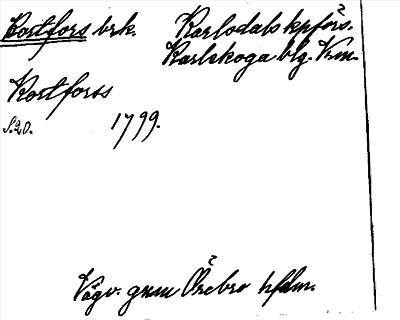 Cortfors brk. Karlsdals kpförs.
Karlskoga blg. Vrm.
Kortforss
S.20. 1799.
Vägv. gnm Örebro hfdm.